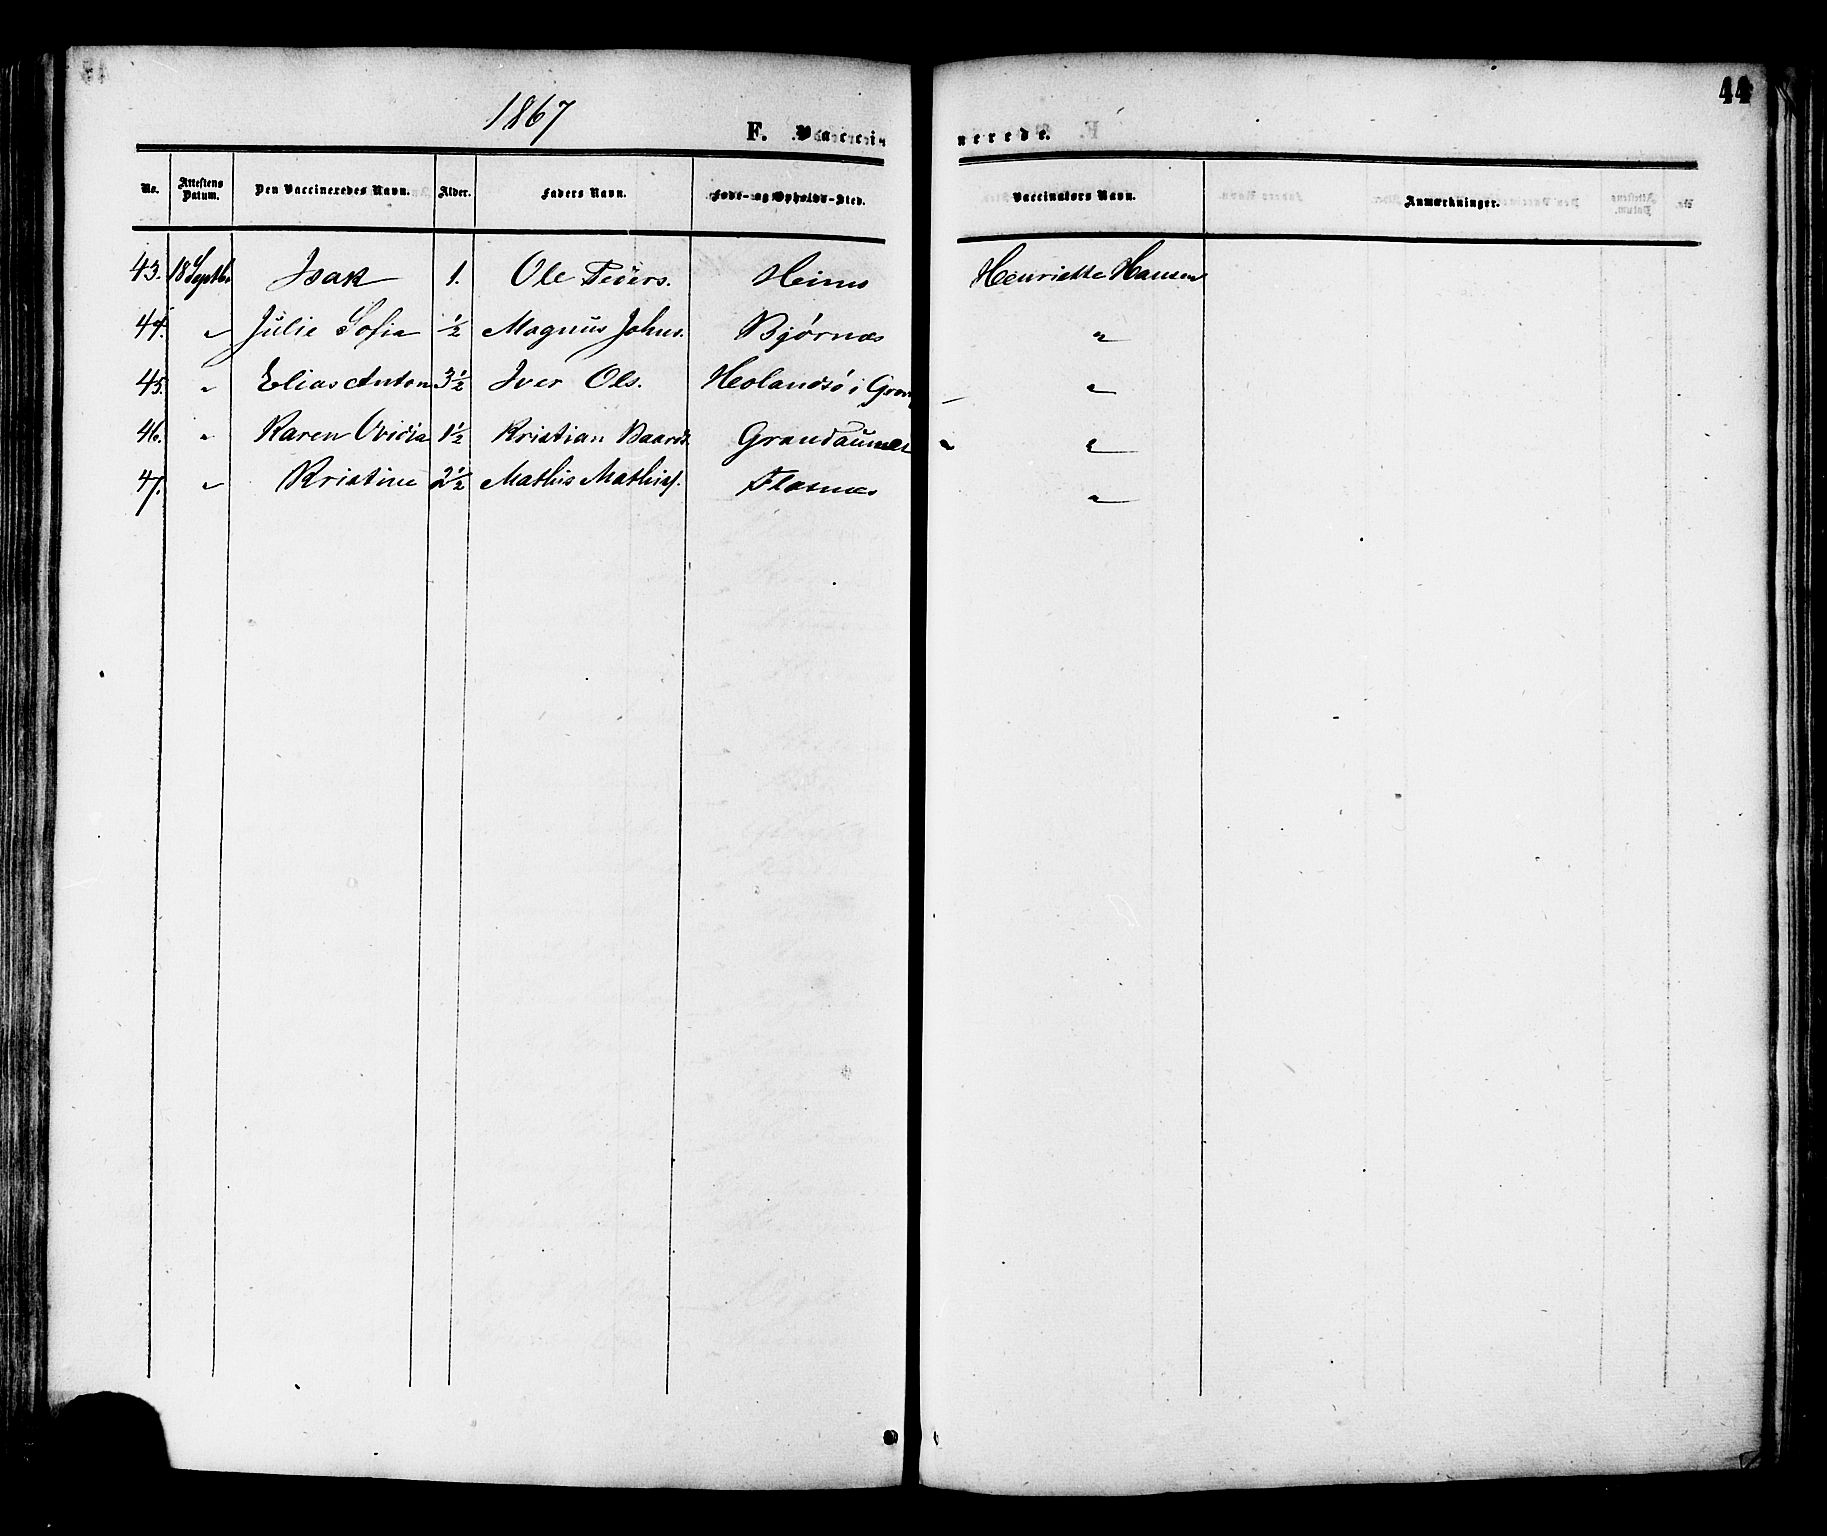 44
1867
F. Vaccinerede.
No. Attestens Datum. Den Vaccineredes Navn. Alder. Faders Navn. Føde- og Opholds-Sted. Vaccinators Navn. Anmærkninger.
43. 18 Septbr Isak 1. Ole Peders. Heines Henriette Hansen
44. " Julie Sofia ½ Magnus Johns. Bjørnæs "
45. " Elias Anton 3½ Iver Ols. i "
46. " Karen Ovidia 1½ Kristian Baards. "
47. " Kristine 2½ Mathis Mathias. Flasnæs "